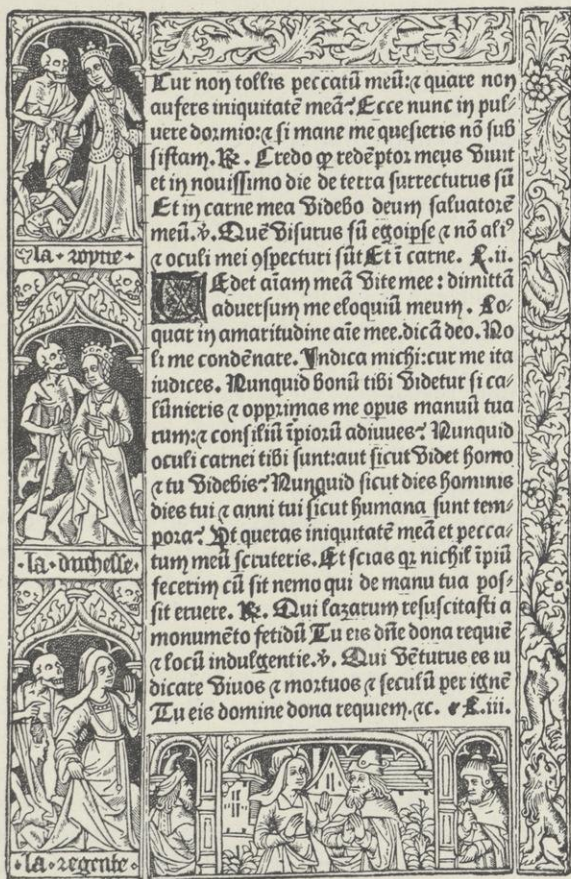 Cur non tollis peccatū meū:⁊ quare non
aufers iniquitatē meā? Ecce nunc in pul-
uere dormio:⁊ si mane me quesieris nō sub
sistam. ℟. Credo ꝙ redēptor meus viuit
et in nouissimo die de terra surrecturus sū
Et in carne mea videbo deum saluatorē
meū. ℣. Quē visurus sū egoipse ⁊ nō aliꝰ
⁊ oculi mei ꝯspecturi sūt Et ī carne. L.ii.
Tedet aīam meā vite mee : dimittā
aduersum me eloquiū meum. Lo-
quar in amaritudine aīe mee. dicā deo. No
li me condēnare. Indica michi:cur me ita
iudices. Nunquid bonū tibi videtur si ca-
lūnieris ⁊ opprimas me opus manuū tua
rum:⁊ consiliū īpiorū adiuues? Nunquid
oculi carnei tibi sunt:aut sicut videt homo
⁊ tu videbis? Nunquid sicut dies hominis
dies tui ⁊ anni tui sicut humana sunt tem-
pora? Ut queras iniquitatē meā et pecca-
tum meū scruteris. Et scias qꝛ nichil īpiū
fecerim cū sit nemo qui de manu tua pos-
sit eruere. ℟. Qui lazarum resuscitasti a
monumēto fetidū Tu eis dñe dona requiē
⁊ locū indulgentie. ℣. Qui vēturus es iu
dicare viuos ⁊ mortuos ⁊ seculū per ignē
Tu eis domine dona requiem. ⁊c. L.iii.
la royne
la duchesse
la regente